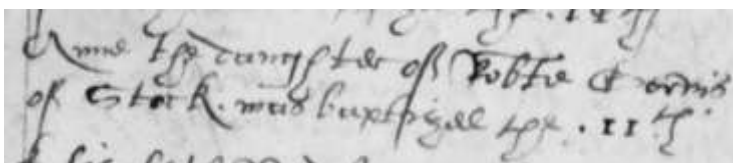 Anne the daughter of Robte
of Stock was baptized the .11th.